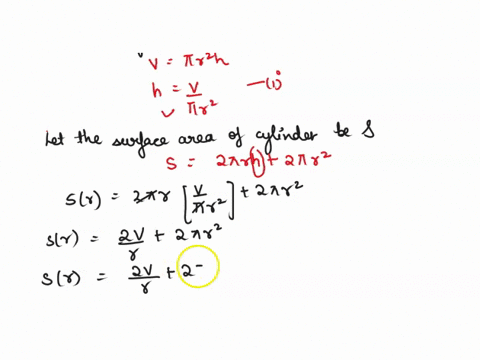 V = πr²h
h = V/πr² —(1)
Let the surface area of cylinder be S
S = 2πr(h) + 2πr²
S(r) = 2πr [V/πr²] + 2πr²
S(r) = 2V/r + 2πr²
S(r) = 2V/r + 2